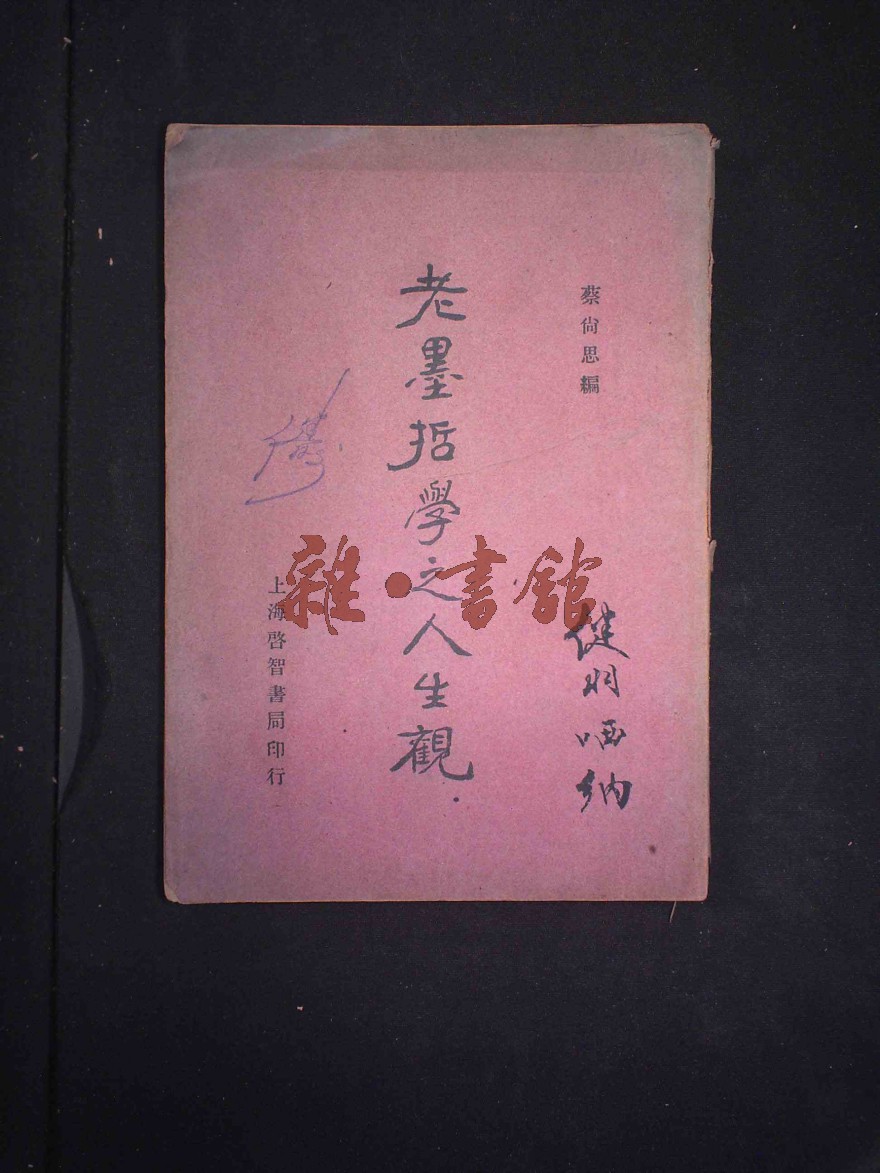 蔡尙思編
老墨哲學之人生觀
上海啓智書局印行
雜·書館
健羽哂納